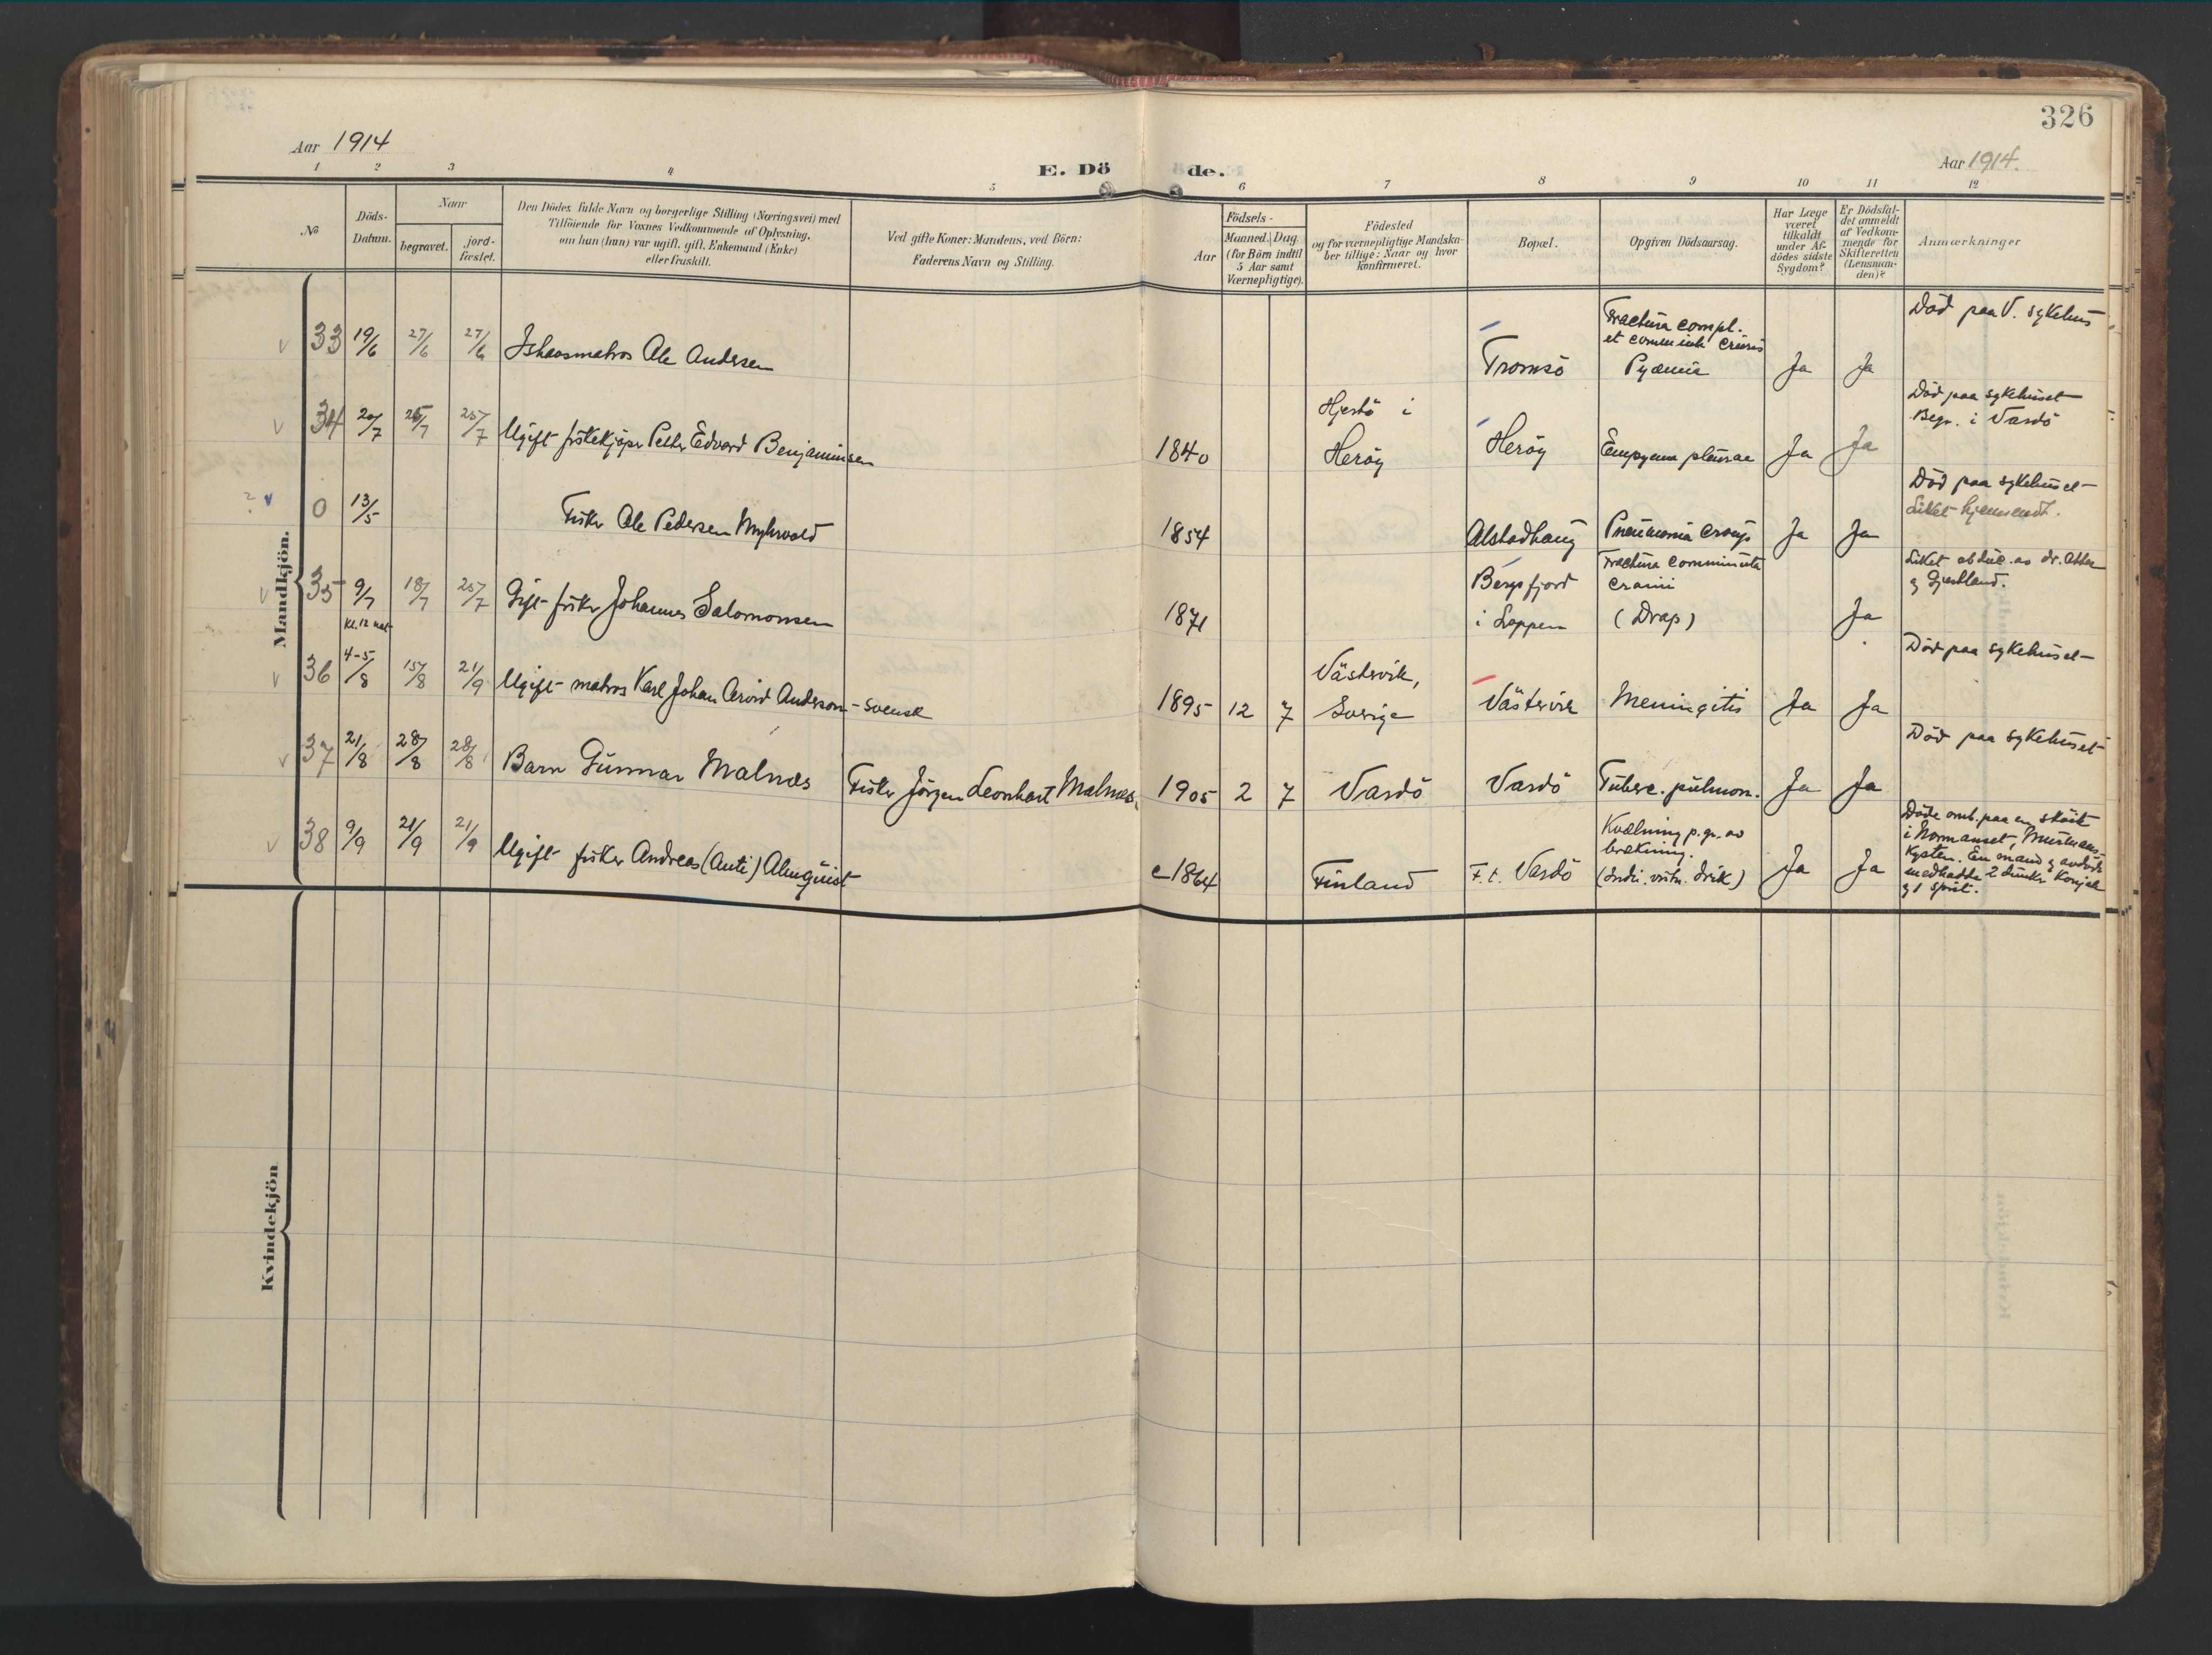 326
Aar 1914
Aar 1914.
E. Dö
de.
1 2 3 4 5 6 7 8 9 10 11 12
No
Döds-
Datum.
Naar
begravet.
jord-
fæstet.
Den Dödes fulde Navn og borgerlige Stilling (Næringsvei) med
Tilföiende for Voxnes Vedkommende af Oplysning,
om han (hun) var ugift, gift, Enkemand (Enke)
eller fraskilt.
Ved gifte Koner: Mandens, ved Börn:
Faderens Navn og Stilling.
Födsels-
Aar
Maaned. Dag.
(for Börn indtil
5 Aar samt
Værnepligtige).
Födested
og for værnepligtige Mandska-
ber tillige: Naar og hvor
konfirmeret.
Bopæl.
Opgiven Dödsaarsag.
Har Læge
været
tilkaldt
under Af-
dödes sidste
Sygdom?
Er Dödsfal-
det anmeldt
af Vedkom-
mende for
Skifteretten
(Lensman-
den)?
Anmærkninger
Mandkjön.
33 19/6 27/6 27/6 Ishavsmatros Ole Andersen
Tromsö
Fractura compl.
et comminuta cruris
Pyæmia
Ja Ja
Död paa V. sykehus
34 20/7 25/7 25/7 Ugift fiskekjöper Petter Edvard Benjaminsen
1840
Hjertö i
Heröy
Heröy
Empyema pleurae
Ja Ja
Död paa sykehuset
Begr. i Vardö
0 13/5
Fisker Ole Pedersen Myhrvold
1854
Alstadhaug
Pneumonia croup
Ja Ja
Död paa sykehuset
Liket hjemsendt.
35 9/7 18/7 25/7 Gift fisker Johannes Salomonsen
Kl. 12 nat
1871
Bergsfjord
i Loppen
Fractura comminuta
cranii
(Drap)
Ja
Liket obduc. av dr.
36 4-5/8 15/8 21/9 Ugift matros Karl Johan Arvid Anderson - svensk
1895 12 7
Västervik,
Sverige
Västervik
Meningitis
Ja Ja
Död paa sykehuset
37 21/8 28/8 28/8 Barn Gunnar Malnæs
Fisker Jörgen Leonhart Malnæs.
1905 2 7
Vardö
Vardö
Tuberc. pulmon.
Ja Ja
Död paa sykehuset
38 9/9 21/9 21/9 Ugift fisker Andreas (Anti) Almquist
c 1864
Finland
F. t. Vardö
Kvælning p. gr. av
brækning.
drik)
Ja Ja
Döde omb. paa en sköit
i Normanset, Murmans-
kysten. En mand og avdöde
medhadde 2 dunker Konjak
og 1 sprit.
Kvindekjön